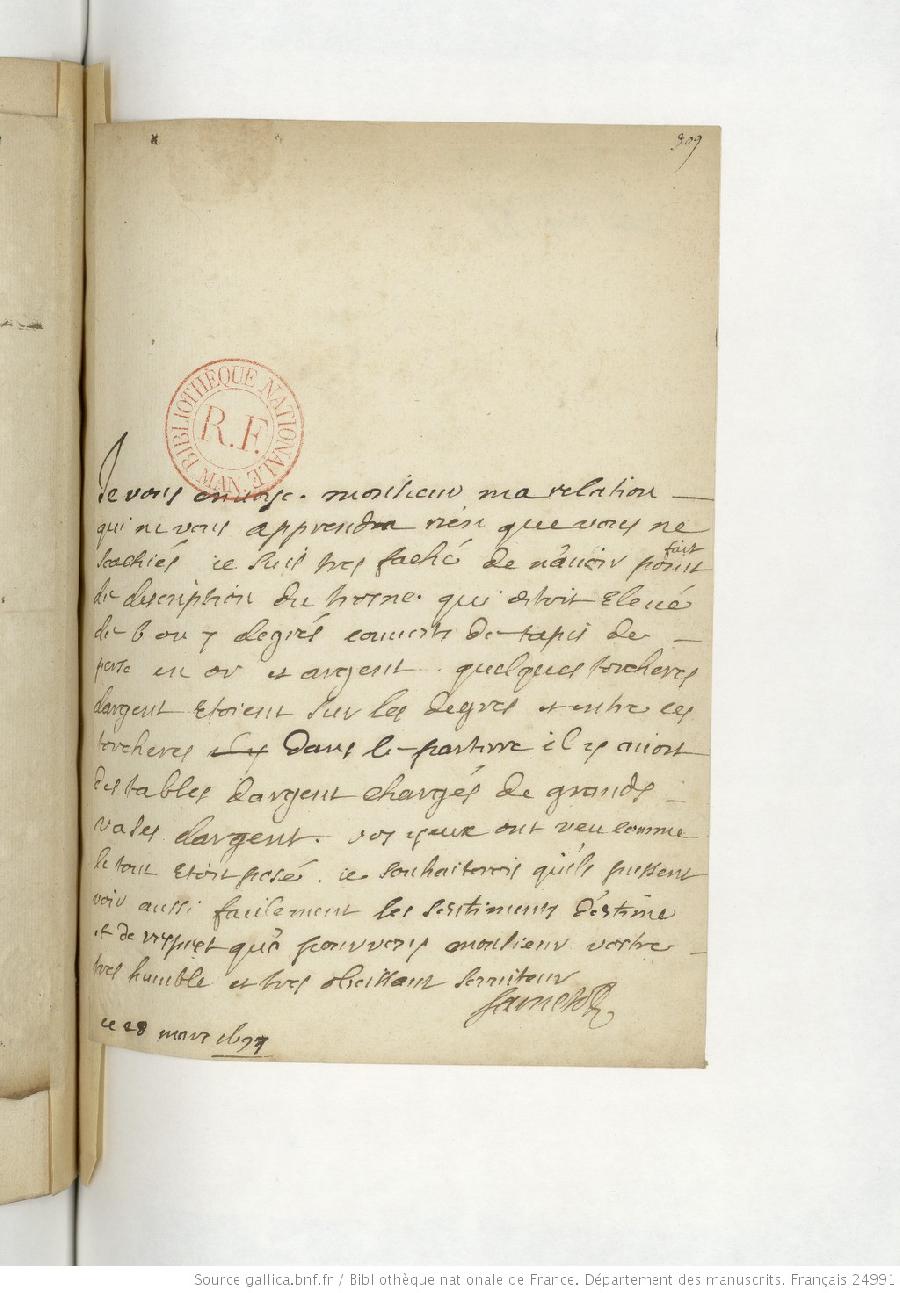 309
BIBLIOTHÈQUE NATIONALE MAN
R.F.
Je vous envoye. monsieur ma relation
qui ne vous apprendra rien que vous ne
sachiés ie suis tres faché de nauoir point fait
la description du trosne. qui estoit Eleué
de 6 ou 7 degrés couuerts de tapis de
perse en or et argent. quelques torcheres
dargent Etoient sur les degres et entre ces
torcheres dans le parterre il y auoit
des tables dargent chargés de grands
vases dargent. vos yeux ont veu comme
le tout Etoit posé. ie souhaiterois quils pussent
voir aussi facilement les sentiments destime
et de respect qu'a pour vous monsieur vostre
tres humble et tres obeissant seruiteur
ce 28 mars 1697
Source gallica.bnf.fr / Bibliothèque nationale de France. Département des manuscrits. Français 24991